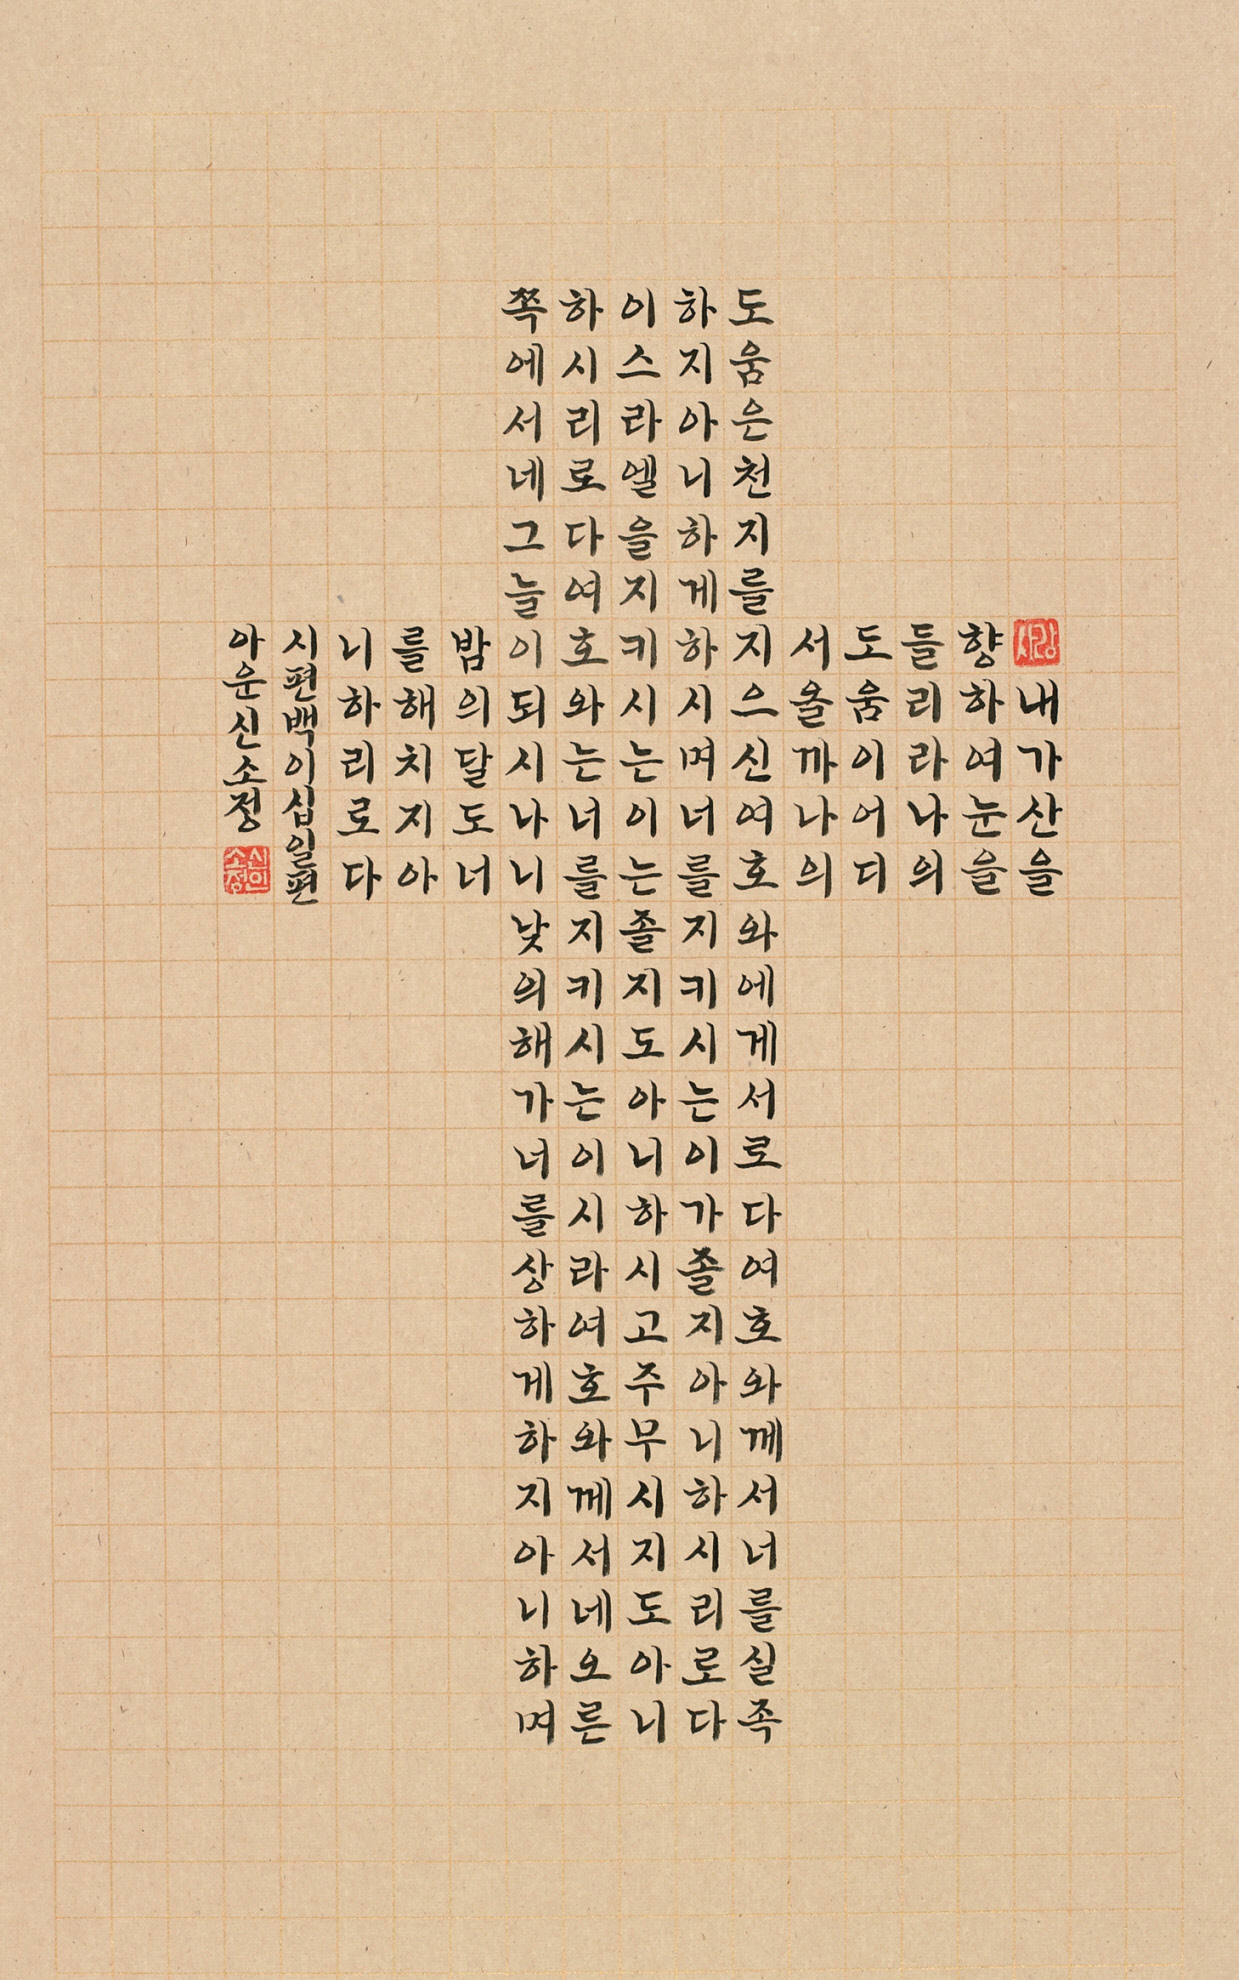 내가산을
향하여눈을
들리라나의
도움이어디
서올까나의
도움은천지를지으신여호와에게서로다여호와께서너를실족
하지아니하게하시며너를지키시는이가졸지아니하시리로다
이스라엘을지키시는이는졸지도아니하시고주무시지도아니
하시리로다여호와는너를지키시는이시라여호와께서네오른
쪽에서네그늘이되시나니낮의해가너를상하게하지아니하며
밤의달도너
를해치지아
니하리로다
시편백이십일편
아운신소정